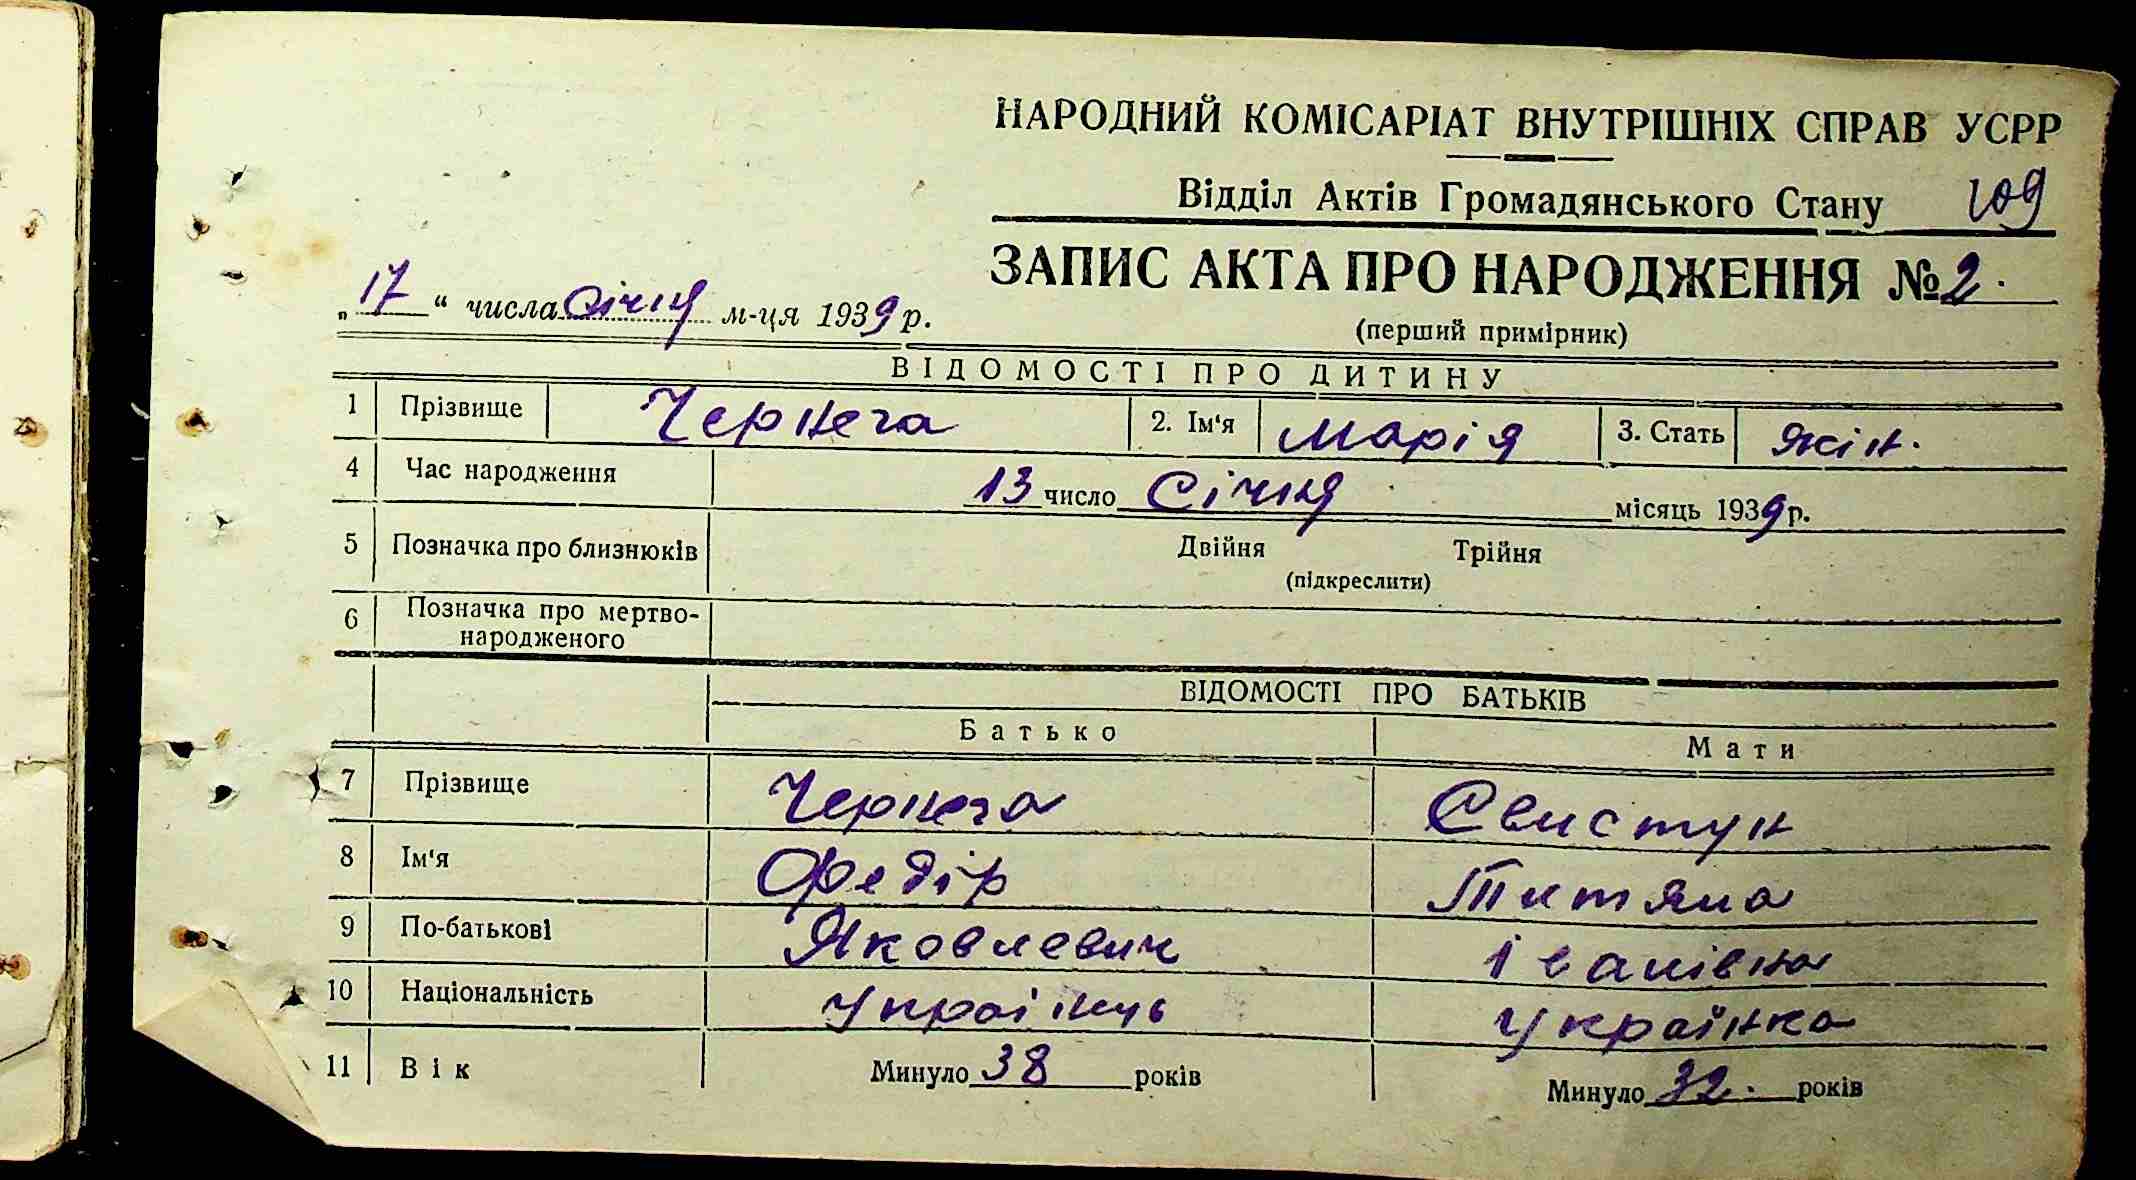 НАРОДНИЙ КОМІСАРІАТ ВНУТРІШНІХ СПРАВ УСРР
Відділ Актів Громадянського Стану 109
ЗАПИС АКТА ПРО НАРОДЖЕННЯ № 2.
„17“ числа Січня м-ця 1939 р.
(перший примірник)
ВІДОМОСТІ ПРО ДИТИНУ
1 Прізвище Чернега 2. Ім'я Марія 3. Стать жін.
4 Час народження 13 число Січня місяць 1939 р.
5 Позначка про близнюків Двійня Трійня
(підкреслити)
6 Позначка про мертво-
народженого
ВІДОМОСТІ ПРО БАТЬКІВ
Батько Мати
7 Прізвище Чернега Свистун
8 Ім'я Федір Титяна
9 По-батькові Яковлевич Іванівна
10 Національність Українць Українка
11 Вік Минуло 38 років Минуло 32. років